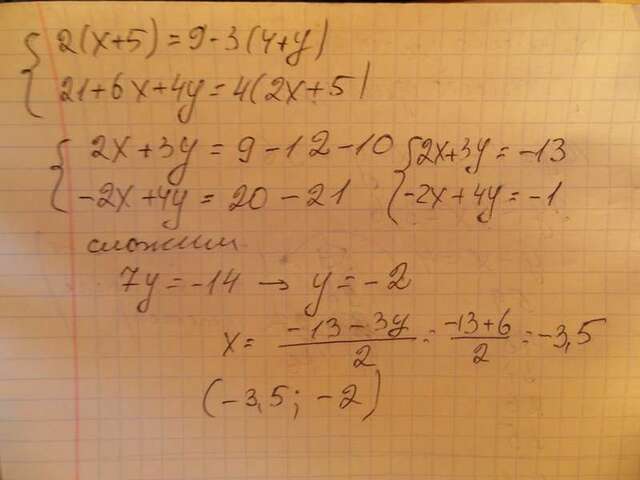 2(x+5)=9-3(4+y)
21+6x+4y=4(2x+5)
2x+3y=9-12-10 2x+3y=-13
-2x+4y=20-21 -2x+4y=-1
сложим
7y=-14 → y=-2
x= (-13-3y)/2 = (-13+6)/2 = -3,5
(-3,5; -2)